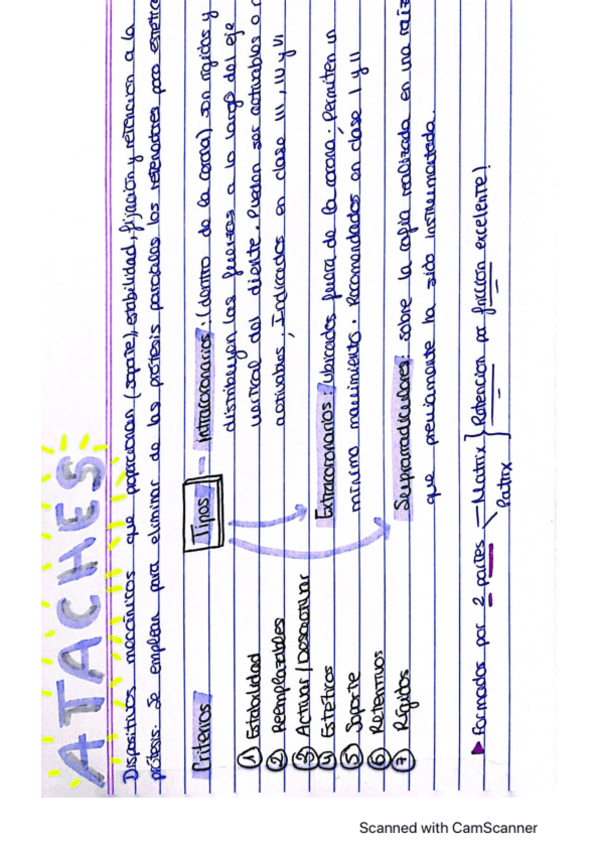 ATACHES
Dispositivos mecánicos que proporcionan (soporte), estabilidad, fijación y retención a la
prótesis. Se emplean para eliminar de las prótesis parciales los retenedores poco estéticos
Criterios
① Estabilidad
② Reemplazables
③ Activar/Desactivar
④ Estéticos
⑤ Soporte
⑥ Retentivos
⑦ Rígidos
Tipos
– Intracoronarios: (dentro de la corona) son rígidos y
distribuyen las fuerzas a lo largo del eje
vertical del diente. Pueden ser activables o
activables; Indicados en clase III, IV y VI
Extracoronarios: Ubicados fuera de la corona. Permiten un
mínimo movimiento. Recomendados en clase I y II
Supraradiculares: sobre la cofia realizada en una raíz
que previamente ha sido instrumentada.
▶ Formados por 2 partes – Matrix } Retención por fricción excelente!
Patrix
Scanned with CamScanner